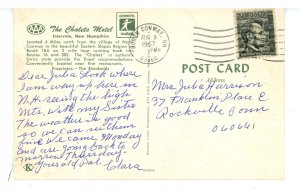 AAA
The Chalets Motel
Intervale, New Hampshire
Located 4 Miles north from the village of North
Conway in the beautiful Eastern Slopes Region on
Route 16A on 2 mile loop running between
Routes 16 and 302. The "Chalets" in authentic
Swiss style provide the finest accommodations.
Conveniently located near five restaurants.
CONWAY
1967
POST CARD
Dear Julia Look where
I am way up here in
N.H. seeing the high
Mts. with my Sister
The weather is good
so we can see them
fine We came Monday
and are going back to
morrow Thursday.
Your old Pal
Clara
Mrs Julia Harrison
37 Franklin Place E
Rockville Conn
K